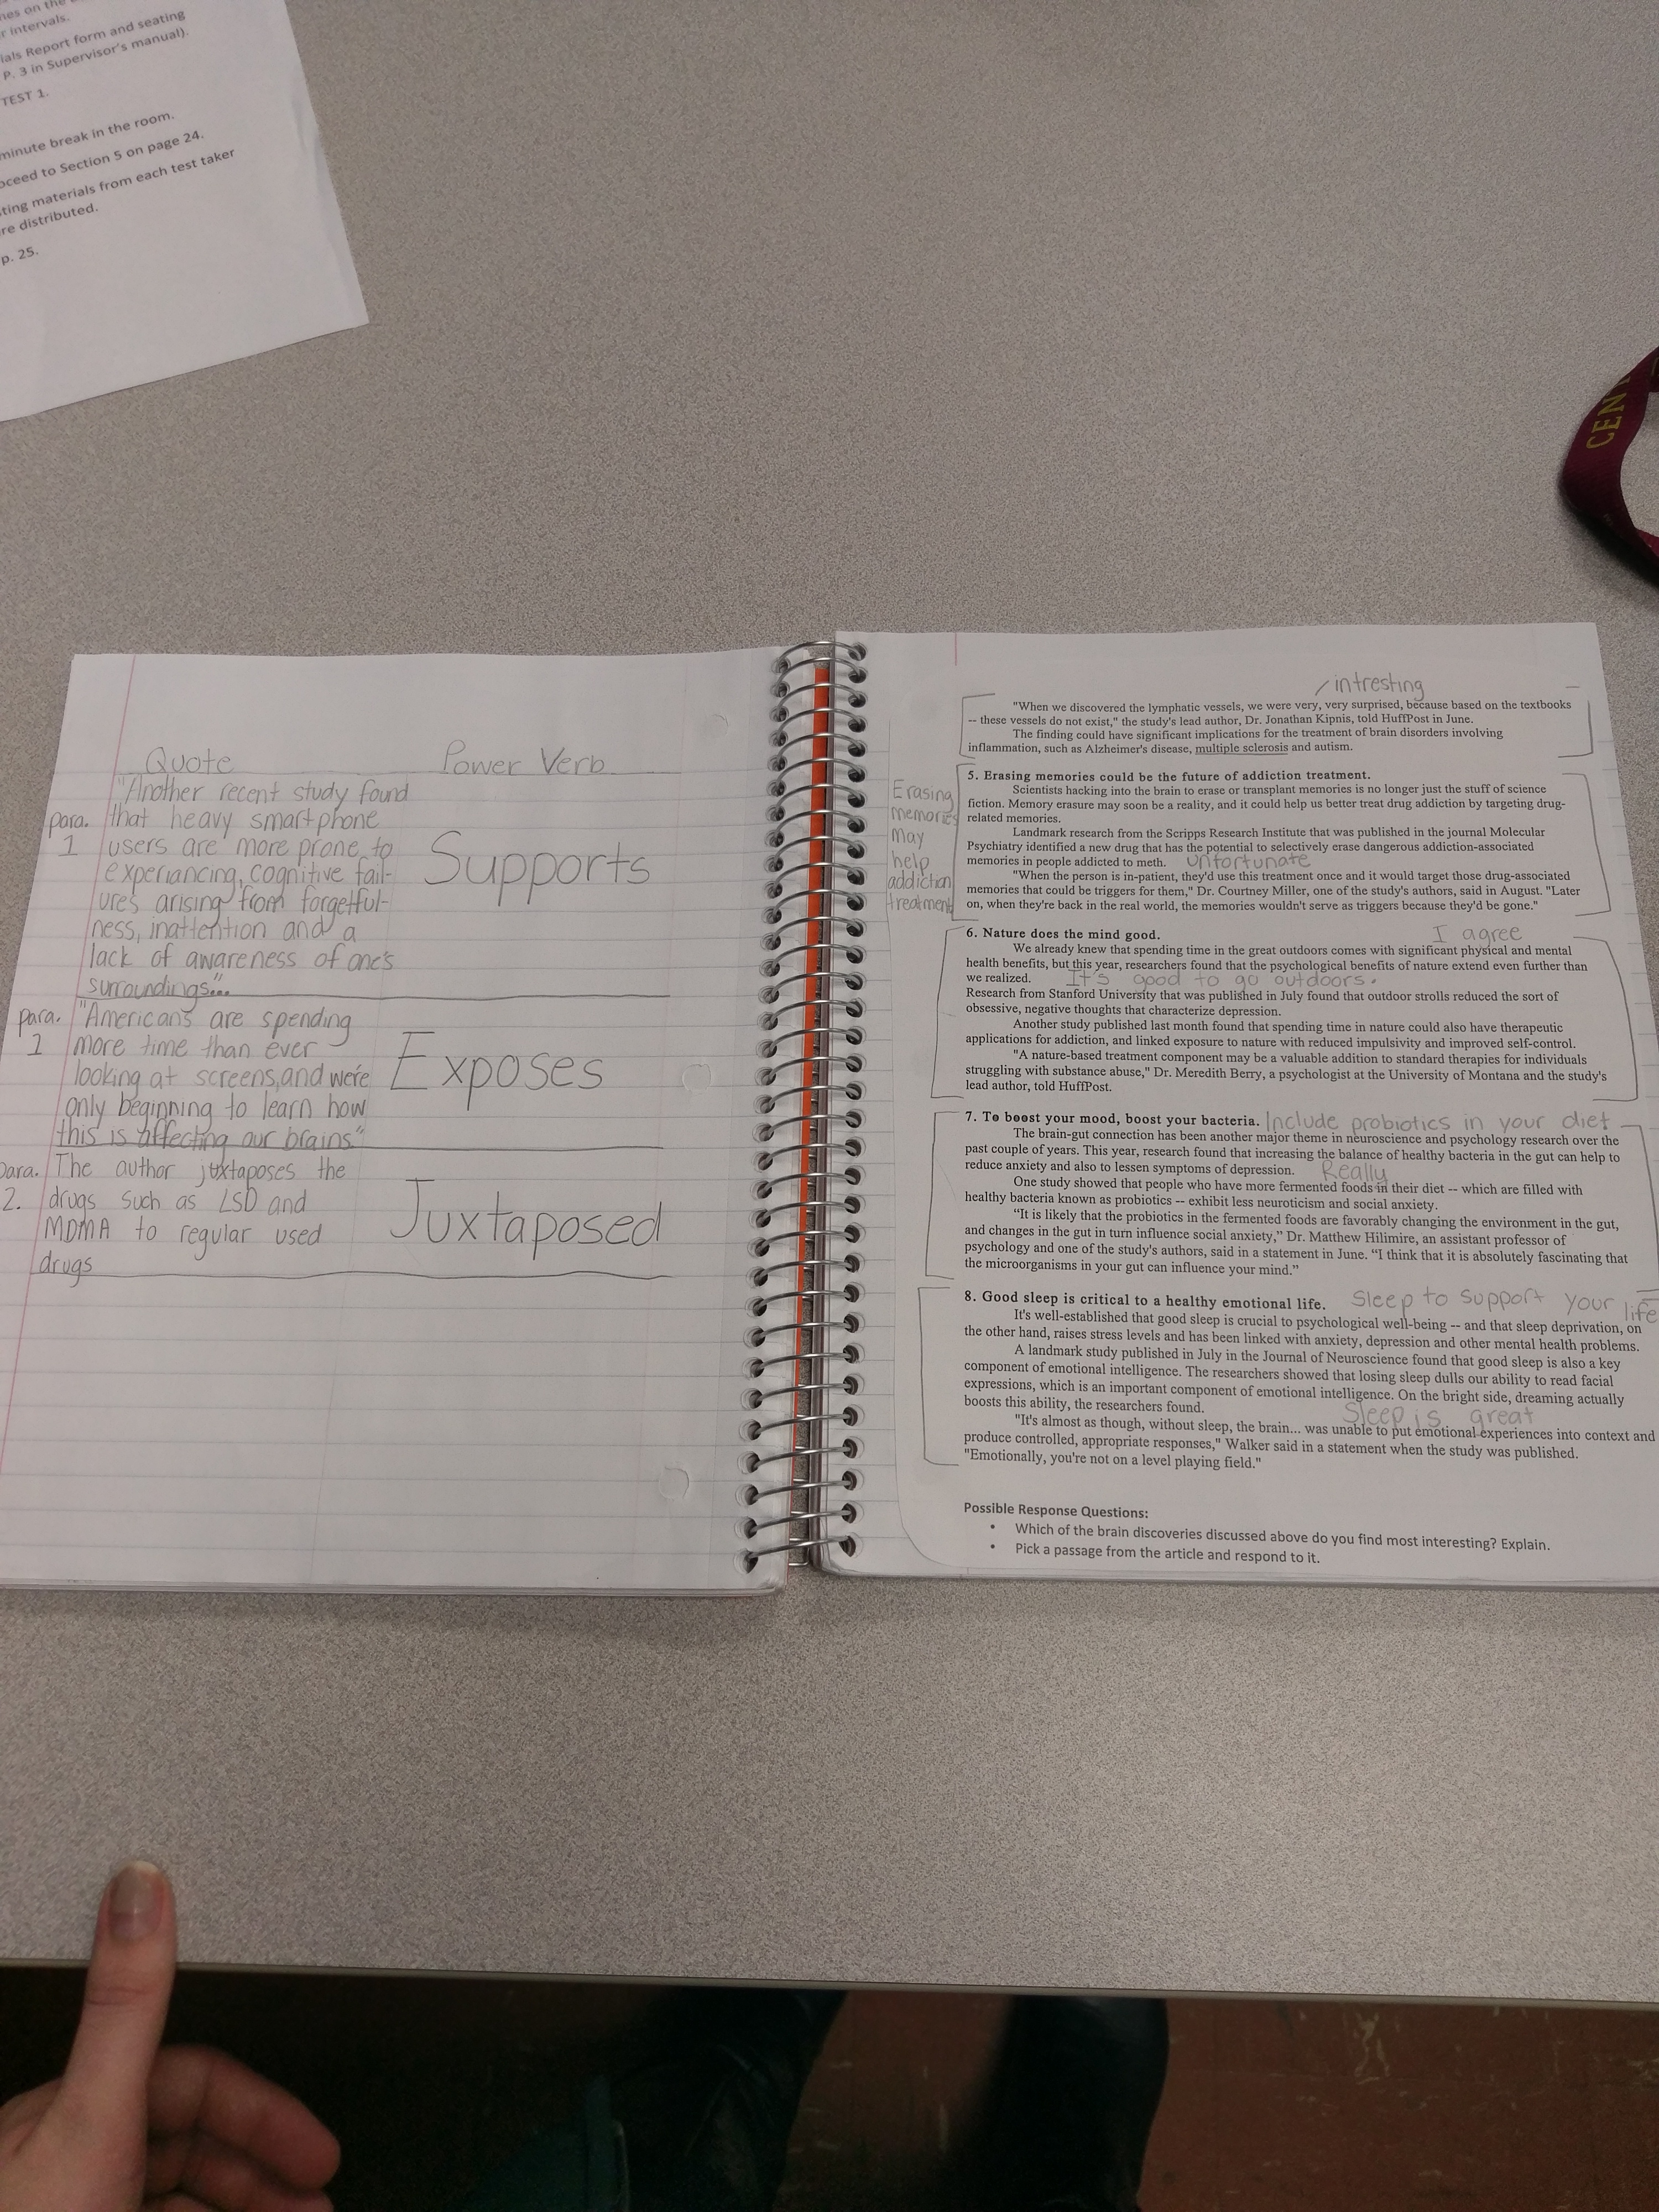 nes on the
r intervals.
ials Report form and seating
P. 3 in Supervisor's manual).
TEST 1.
minute break in the room.
oceed to Section 5 on page 24.
sting materials from each test taker
re distributed.
p. 25.
CENT
Quote Power Verb
"Another recent study found
para. that heavy smartphone
1 users are more prone to
experiancing, cognitive fail-
ures arising from forgetful-
ness, inattention and a
lack of awareness of one's
surroundings"...
Supports
para. "Americans are spending
1 more time than ever
looking at screens, and we're
only beginning to learn how
this is affecting our brains"
Exposes
para. The author juxtaposes the
2. drugs such as LSD and
MDMA to regular used
drugs
Juxtaposed
intresting
"When we discovered the lymphatic vessels, we were very, very surprised, because based on the textbooks
-- these vessels do not exist," the study's lead author, Dr. Jonathan Kipnis, told HuffPost in June.
The finding could have significant implications for the treatment of brain disorders involving
inflammation, such as Alzheimer's disease, multiple sclerosis and autism.
Erasing
memories
may
help
addiction
treatment
5. Erasing memories could be the future of addiction treatment.
Scientists hacking into the brain to erase or transplant memories is no longer just the stuff of science
fiction. Memory erasure may soon be a reality, and it could help us better treat drug addiction by targeting drug-
related memories.
Landmark research from the Scripps Research Institute that was published in the journal Molecular
Psychiatry identified a new drug that has the potential to selectively erase dangerous addiction-associated
memories in people addicted to meth. unfortunate
"When the person is in-patient, they'd use this treatment once and it would target those drug-associated
memories that could be triggers for them," Dr. Courtney Miller, one of the study's authors, said in August. "Later
on, when they're back in the real world, the memories wouldn't serve as triggers because they'd be gone."
6. Nature does the mind good. I agree
We already knew that spending time in the great outdoors comes with significant physical and mental
health benefits, but this year, researchers found that the psychological benefits of nature extend even further than
we realized. It's good to go outdoors.
Research from Stanford University that was published in July found that outdoor strolls reduced the sort of
obsessive, negative thoughts that characterize depression.
Another study published last month found that spending time in nature could also have therapeutic
applications for addiction, and linked exposure to nature with reduced impulsivity and improved self-control.
"A nature-based treatment component may be a valuable addition to standard therapies for individuals
struggling with substance abuse," Dr. Meredith Berry, a psychologist at the University of Montana and the study's
lead author, told HuffPost.
7. To boost your mood, boost your bacteria. Include probiotics in your diet
The brain-gut connection has been another major theme in neuroscience and psychology research over the
past couple of years. This year, research found that increasing the balance of healthy bacteria in the gut can help to
reduce anxiety and also to lessen symptoms of depression. Really
One study showed that people who have more fermented foods in their diet -- which are filled with
healthy bacteria known as probiotics -- exhibit less neuroticism and social anxiety.
"It is likely that the probiotics in the fermented foods are favorably changing the environment in the gut,
and changes in the gut in turn influence social anxiety," Dr. Matthew Hilimire, an assistant professor of
psychology and one of the study's authors, said in a statement in June. "I think that it is absolutely fascinating that
the microorganisms in your gut can influence your mind."
8. Good sleep is critical to a healthy emotional life. Sleep to support your life
It's well-established that good sleep is crucial to psychological well-being -- and that sleep deprivation, on
the other hand, raises stress levels and has been linked with anxiety, depression and other mental health problems.
A landmark study published in July in the Journal of Neuroscience found that good sleep is also a key
component of emotional intelligence. The researchers showed that losing sleep dulls our ability to read facial
expressions, which is an important component of emotional intelligence. On the bright side, dreaming actually
boosts this ability, the researchers found. Sleep is great
"It's almost as though, without sleep, the brain... was unable to put emotional experiences into context and
produce controlled, appropriate responses," Walker said in a statement when the study was published.
"Emotionally, you're not on a level playing field."
Possible Response Questions:
• Which of the brain discoveries discussed above do you find most interesting? Explain.
• Pick a passage from the article and respond to it.